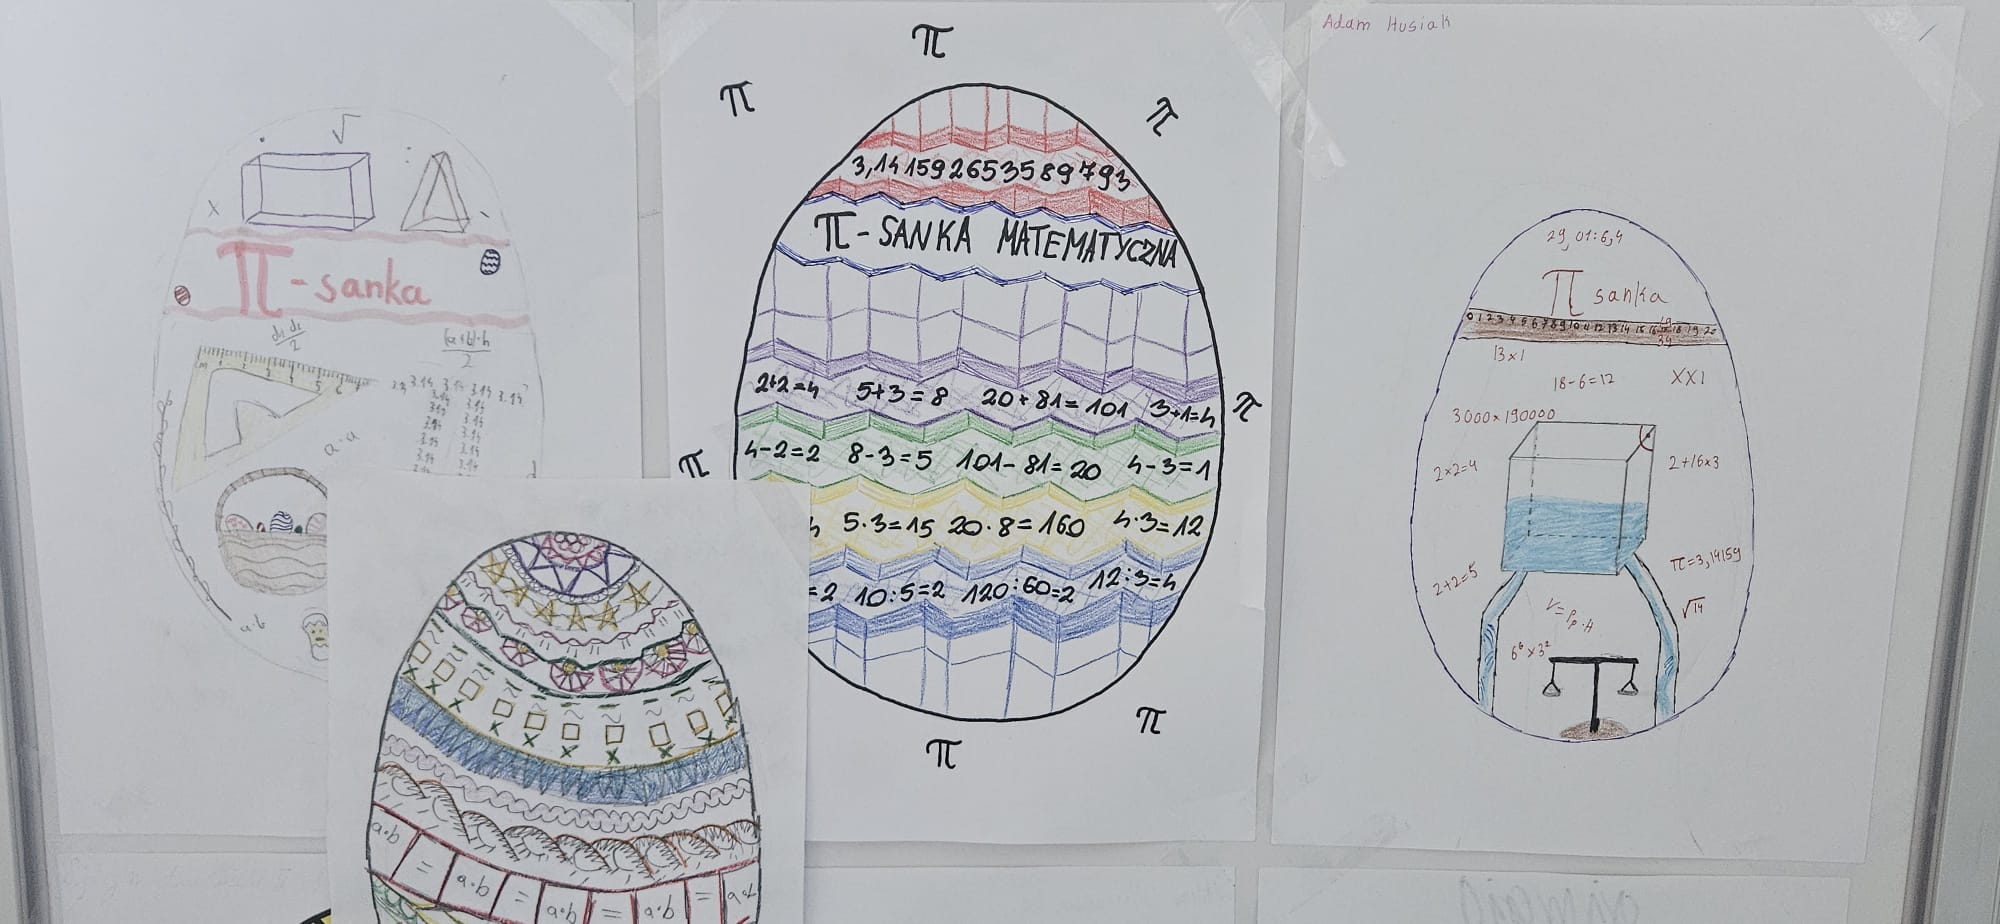 √
x
π-sanka
(a+b)·h
2
3.14 3.14 3.14 3.14
3.14 3.14
3.14 3.14
3.14 3.14
3.14 3.14
3.14 3.14
a·a
a·b
π
π
π
3,141592653589793
π-SANKA MATEMATYCZNA
2+2=4 5+3=8 20+81=101 3+1=4
π
4-2=2 8-3=5 101-81=20 4-3=1
π
5·3=15 20·8=160 4·3=12
=2 10:5=2 120:60=2 12:3=4
π
π
a·a = a·a = a·a = a·a =
Adam Husiak
29,01:6,4
π sanka
0 1 2 3 4 5 6 7 8 9 10 11 12 13 14 15 16 18 19 20
13x1
18-6=12
XXI
3000x190000
2x2=4
2+16x3
2+2=5
π=3,14159
V=Pp·H
√14
6⁶x3²